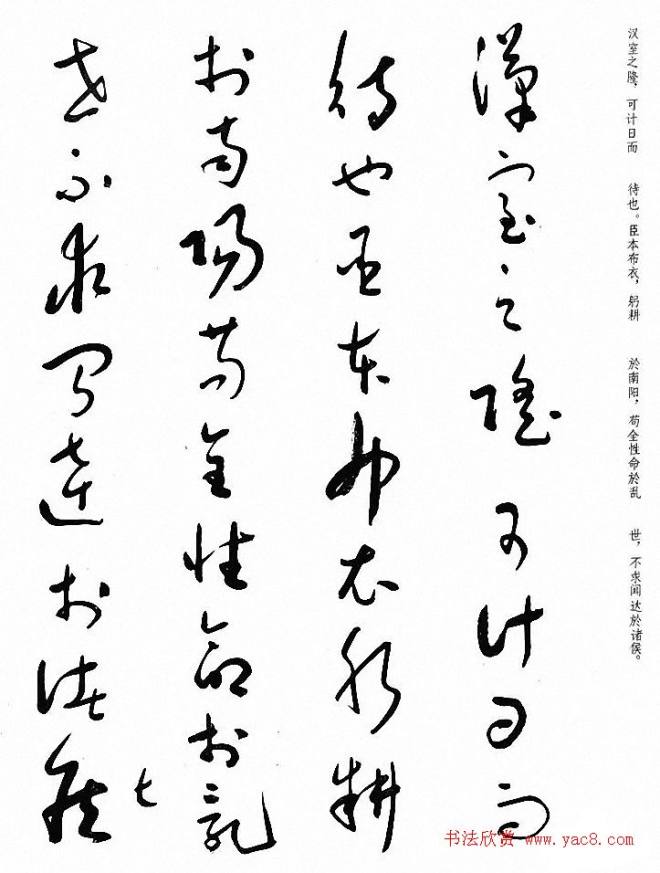 汉室之隆，可计日而　待也。臣本布衣，躬耕　於南阳，苟全性命於乱　世，不求闻达於诸侯。
漢室之隆可計日而
待也臣本布衣躬耕
於南陽苟全性命於亂
世不求聞達於諸侯
七
书法欣赏 www.yac8.com